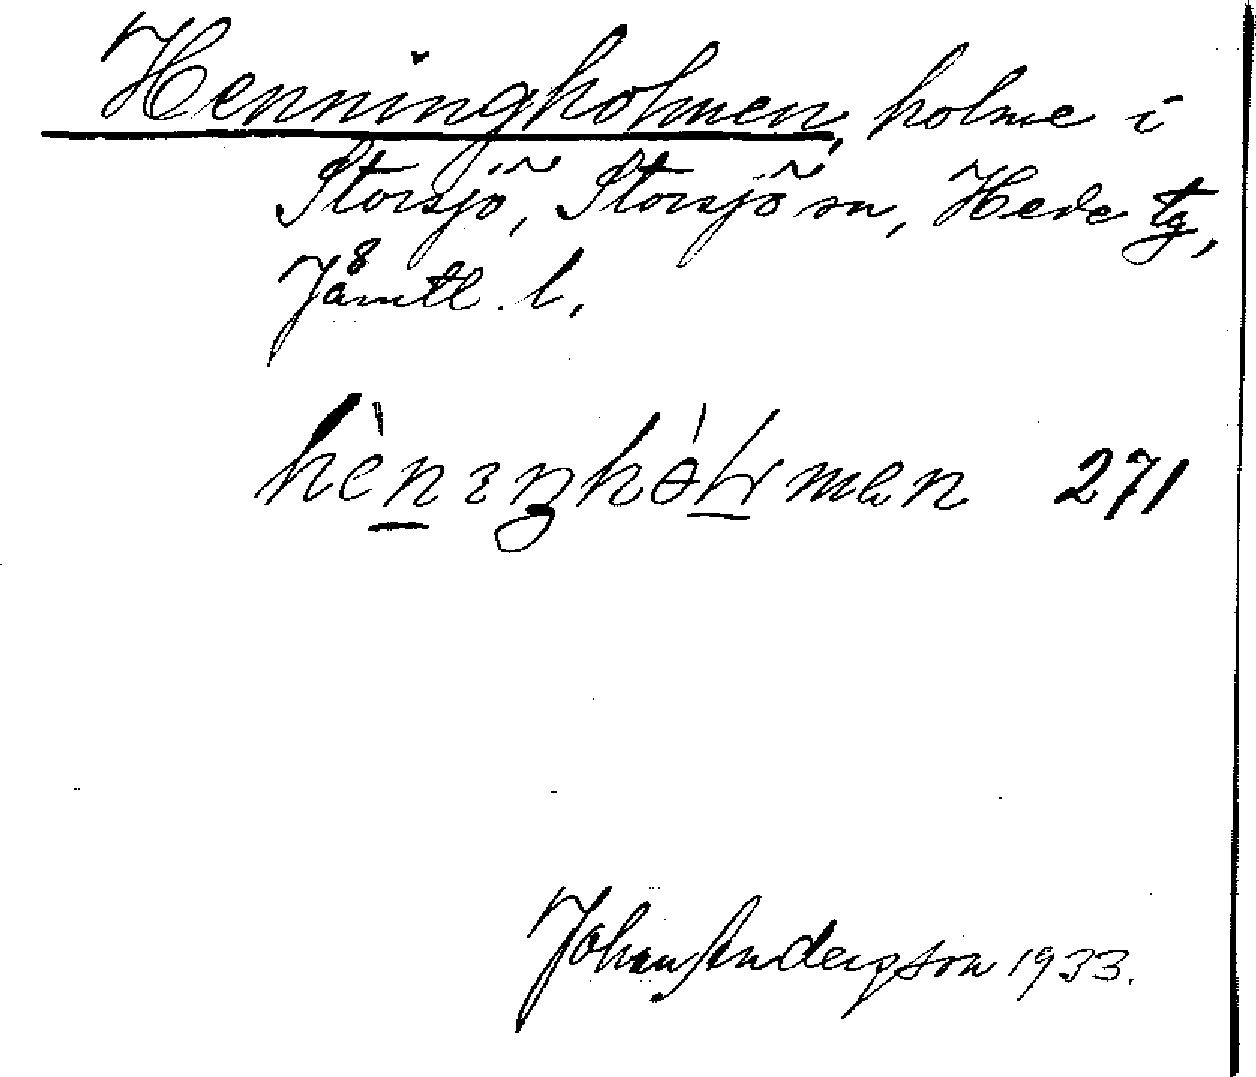 Henningholmen, holme i
Storsjö, Storsjö sn, Hede tg,
Jämtl. l.
271
Johan Anderson 1933.